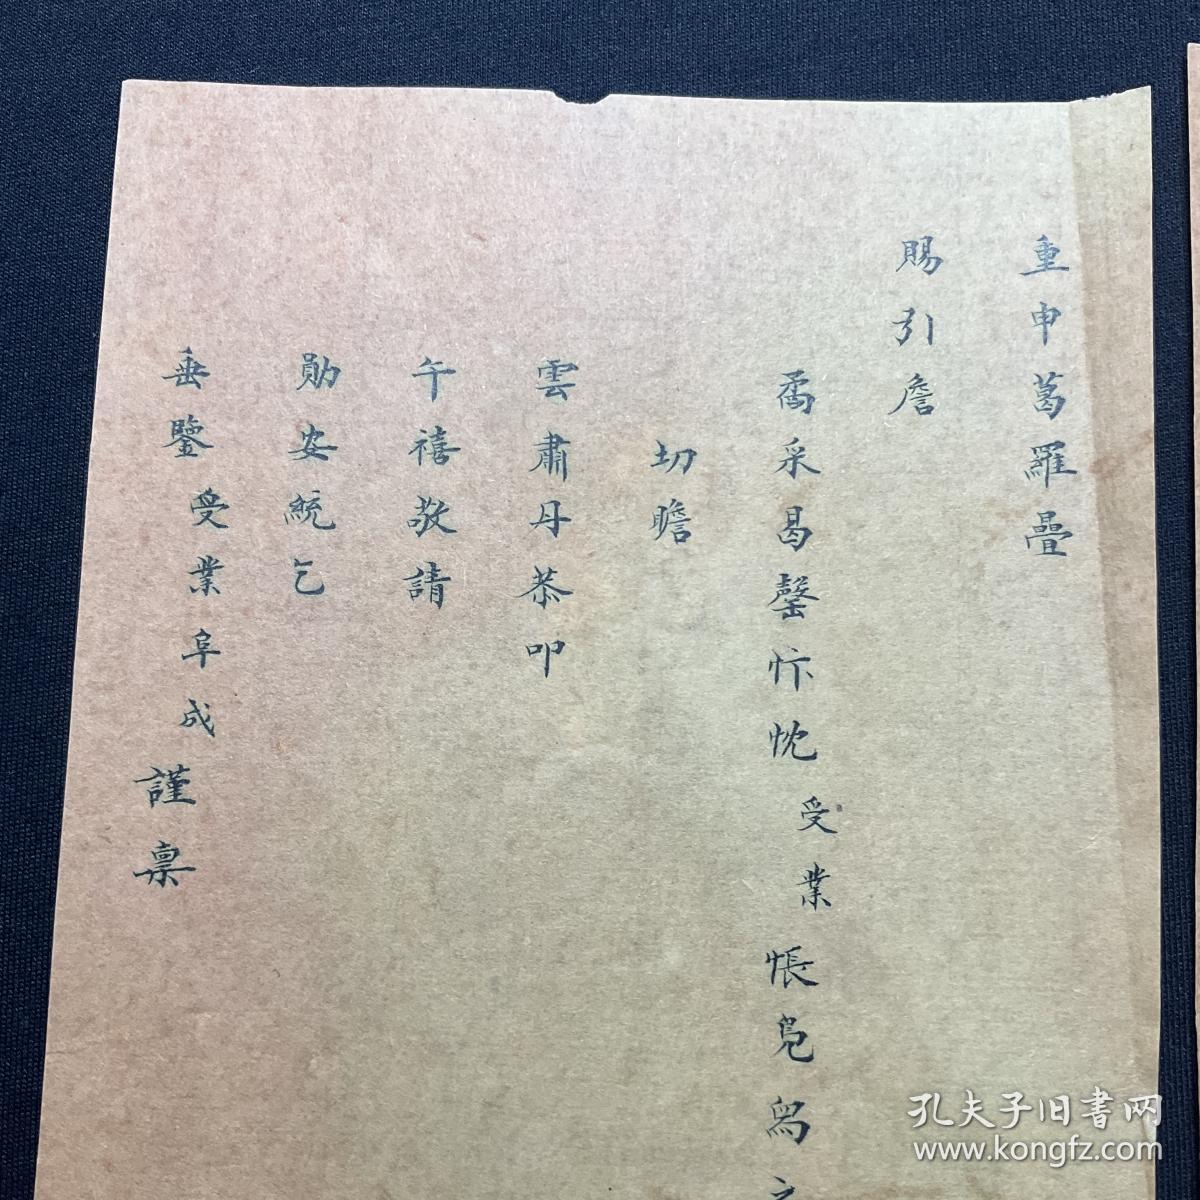 重申葛羅疊
賜引詹
矞采曷罄忭忱受業悵鳧舄之
切瞻
雲肅丹恭叩
午禧敬請
勛安統乞
垂鑒受業阜成謹稟
孔夫子旧书网
www.kongfz.com